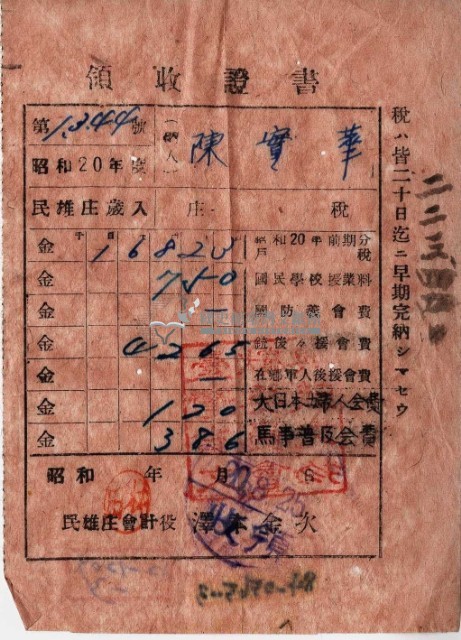 領收證書
第1344號
(納人) 陳實華
昭和20年度
民雄庄歲入 庄稅
金 16823 昭和20年前期分 戶稅
金 750 國民學校授業料
金 — 國防義會費
金 4265 銃後々援會費
金 — 在鄉軍人後援會費
金 120 大日本婦人会費
金 386 馬事普及会費
昭和 年 月 日
民雄庄會計役 澤本金次
稅ハ皆二十日迄ニ早期完納シマセウ
20.8.25